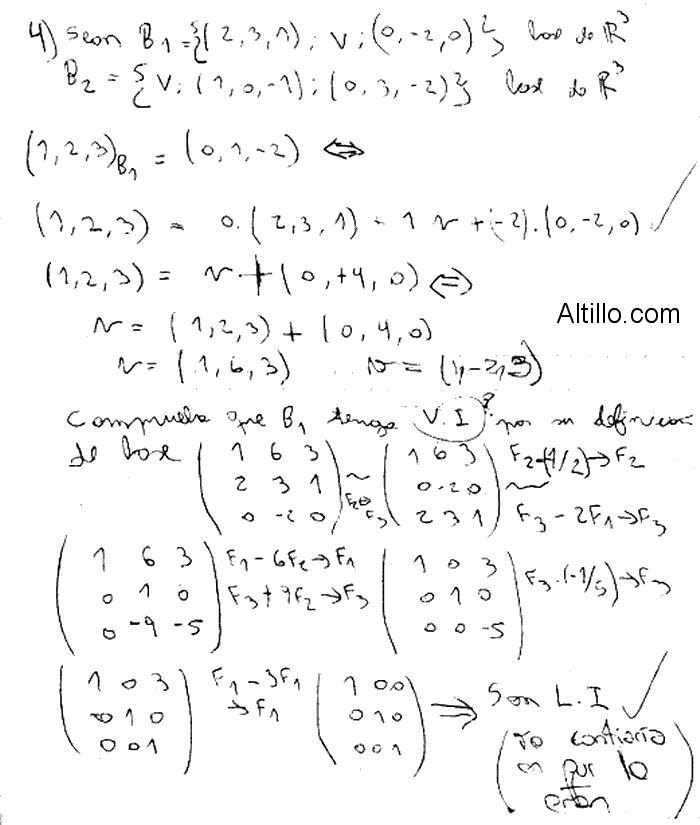 4) Sean B₁ = {(2,3,1); V; (0,-2,0)} base de ℝ³
B₂ = {V; (1,0,-1); (0,3,-2)} base de ℝ³
(1,2,3)B₁ = (0,1,-2) ⇔
(1,2,3) = 0.(2,3,1) + 1 v + (-2).(0,-2,0) ✓
(1,2,3) = v + (0,+4,0) ⇔
v = (1,2,3) + (0,4,0)
Altillo.com
v = (1,6,3) v = (1,-2,3)
Comprueba que B₁ tenga V.I ? por su definición
de base
(1 6 3 / 2 3 1 / 0 -2 0) ~ F₂↔F₃ (1 6 3 / 0 -2 0 / 2 3 1) ~ F₂.(-1/2)→F₂ F₃-2F₁→F₃
(1 6 3 / 0 1 0 / 0 -9 -5) F₁-6F₂→F₁ F₃+9F₂→F₃ (1 0 3 / 0 1 0 / 0 0 -5) F₃.(-1/5)→F₃
(1 0 3 / 0 1 0 / 0 0 1) F₁-3F₁→F₁ (1 0 0 / 0 1 0 / 0 0 1) ⇒ Son L.I ✓
en por lo